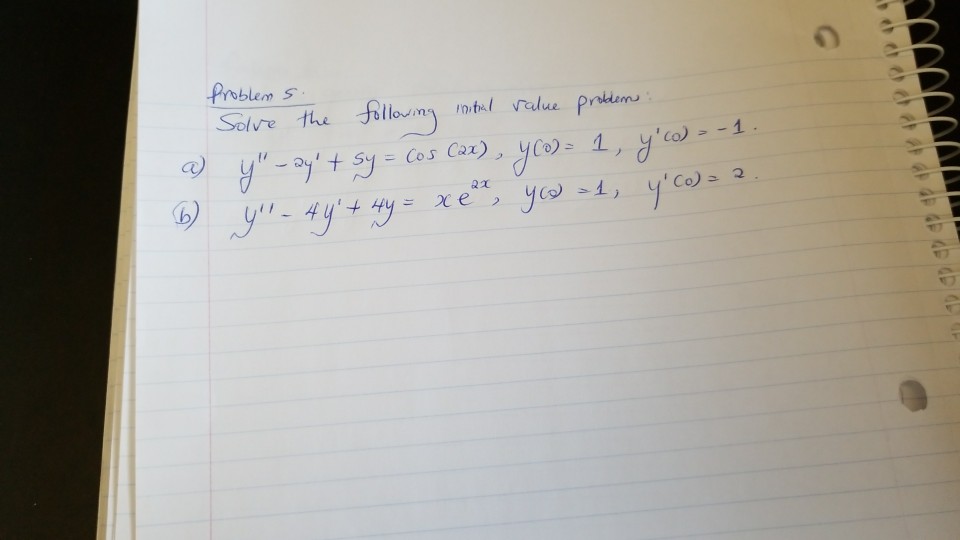 Problem 5.
Solve the following initial value problems:
a) y'' - 2y' + 5y = Cos (2x), y(0) = 1, y'(0) = -1.
(b) y'' - 4y' + 4y = xe^{2x}, y(0) = 1, y'(0) = 2.